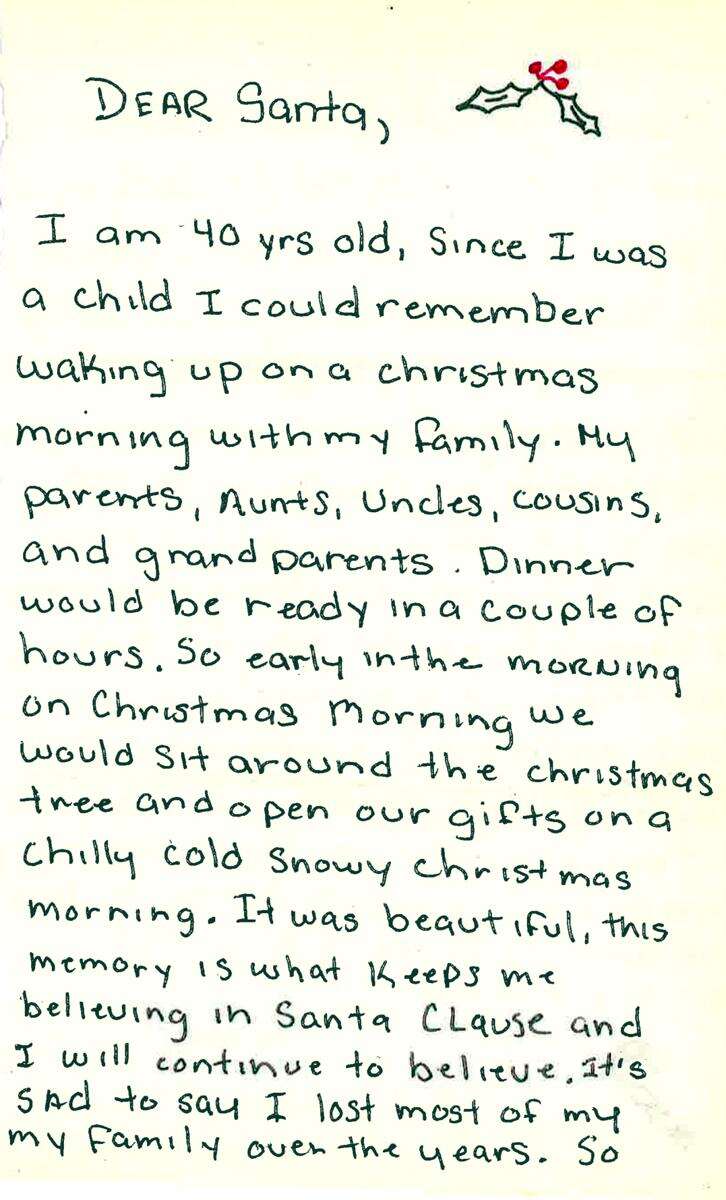 DEAR Santa,
I am 40 yrs old, Since I was
a child I could remember
waking up on a christmas
morning with my family. My
parents, Aunts, Uncles, cousins,
and grandparents. Dinner
would be ready in a couple of
hours. So early in the morning
on Christmas Morning we
would sit around the christmas
tree and open our gifts on a
chilly cold snowy christmas
morning. It was beautiful, this
memory is what keeps me
believing in Santa Clause and
I will continue to believe. It's
SAd to say I lost most of my
my family over the years. So